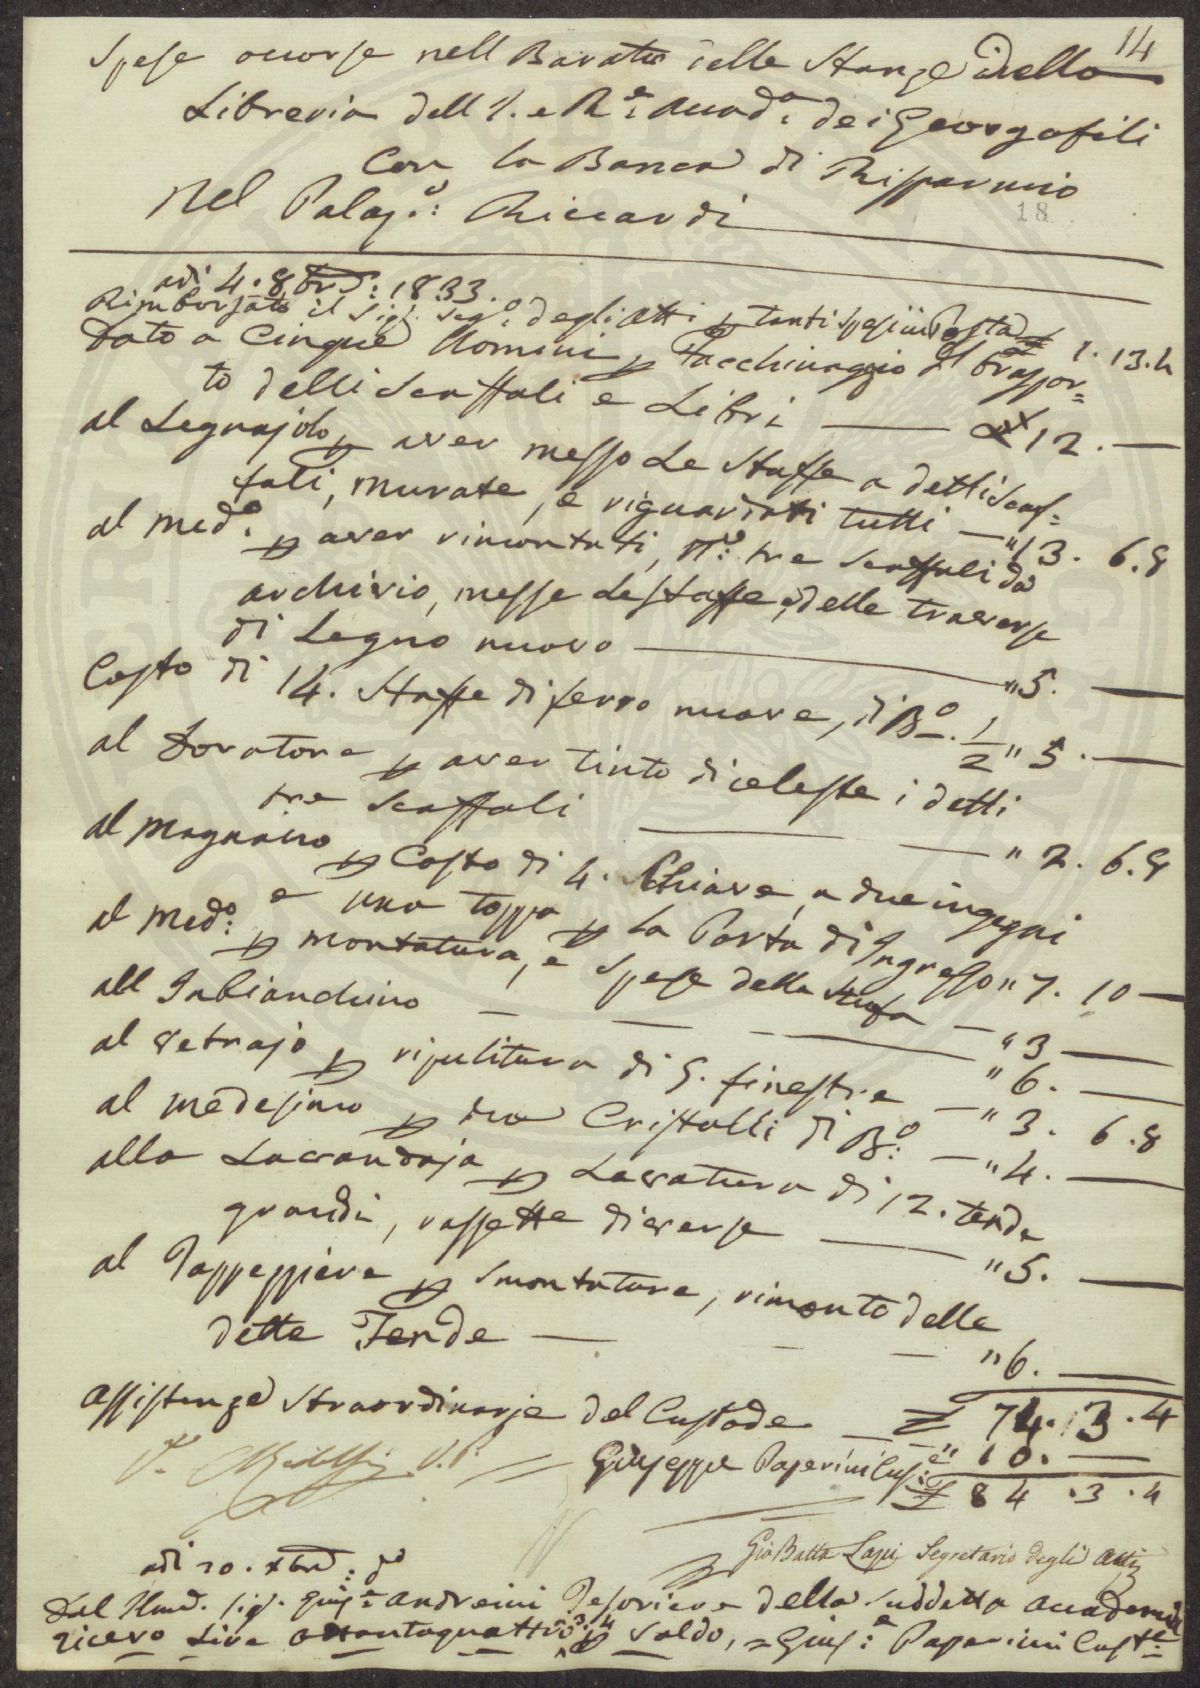 14
Spese occorse nell Baratto delle Stanze della
Libreria dell'I. e R.e Accad.a dei Georgofili
Con la Banca di Risparmio
18
Nel Palaz.o: Riccardi
adì 4. 8bre: 1833.
Rimborsato il Sig. Seg.o: degli Atti p tanti spesi in Posta £ 1. 13. 4
Dato a Cinque Uomini p Facchinaggio di traspor=
to delli Scaffali e Libri — 12. —
al Legnajolo p aver messo Le Staffe a detti Scaf=
fali, murate, e riguardati tutti — " 13. 6. 8
al med.o: p aver rimontati, n.o: tre Scaffali da
archivio, messe Le Staffe, e delle traverse
di Legno nuovo — " 5. —
Costo di 14. Staffe di ferro nuove, di B.o 1/2 " 5. —
al Doratore p aver tinto di celeste i detti
tre Scaffali — " 2. 6. 8
al Magnaino p Costo di 4. Chiave, a due ingegni
e una toppa p la Porta di Ingresso " 7. 10 —
al Med.o: p montatura, e Spese della Stufa — " 3 —
all Inbianchino — " 6. —
al Vetrajo p ripulitura di 5. finestre — " 3. 6. 8
al medesimo p due Cristalli di B.o: — " 4. —
alla Lavandaja p Lavatura di 12. tende
grandi, rassette diverse — " 5. —
al Tappezziere p Smontatura, rimonto delle
dette Tende — " 6. —
£ 74. 13. 4
Assistenze Straordinarie del Custode — " 10. —
Giuseppe Paperini Cus.e: £ 84 . 3 . 4
V. Ridolfi V. P.
Gio Batta Lapi Segretario degli Atti
adì 20. Xbre: d.o
Dal Illmo. Sig. Giu.e: Andreini Tesoriere della Suddetta Accademia
ricevo Lire ottantaquattro 3.4 p Saldo, = Gius.e: Paperini Cust.e: